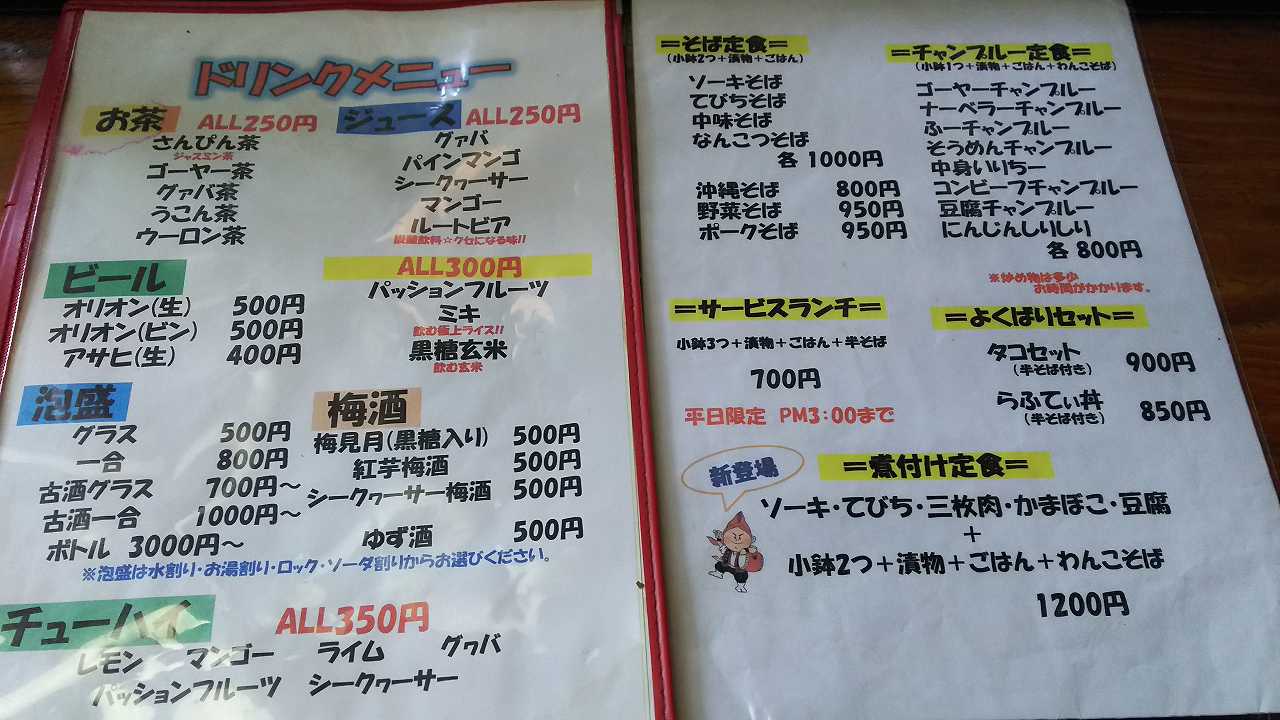 ドリンクメニュー
お茶 ALL250円
さんぴん茶
ジャスミン茶
ゴーヤー茶
グァバ茶
うこん茶
ウーロン茶
ジュース ALL250円
グァバ
パインマンゴ
シークヮーサー
マンゴー
ルートビア
炭酸飲料☆クセになる味!!
ALL300円
パッションフルーツ
ミキ
飲む極上ライス!!
黒糖玄米
飲む玄米
ビール
オリオン(生) 500円
オリオン(ビン) 500円
アサヒ(生) 400円
泡盛
グラス 500円
一合 800円
古酒グラス 700円～
古酒一合 1000円～
ボトル 3000円～
梅酒
梅見月(黒糖入り) 500円
紅芋梅酒 500円
シークヮーサー梅酒 500円
ゆず酒 500円
※泡盛は水割り・お湯割り・ロック・ソーダ割りからお選びください。
チューハイ ALL350円
レモン マンゴー ライム グヮバ
パッションフルーツ シークヮーサー
＝そば定食＝
(小鉢2つ＋漬物＋ごはん)
ソーキそば
てびちそば
中味そば
なんこつそば
各 1000円
沖縄そば 800円
野菜そば 950円
ポークそば 950円
＝チャンプルー定食＝
(小鉢1つ＋漬物＋ごはん＋わんこそば)
ゴーヤーチャンプルー
ナーベラーチャンプルー
ふーチャンプルー
そうめんチャンプルー
中身いりちー
コンビーフチャンプルー
豆腐チャンプルー
にんじんしりしり
各 800円
※炒め物は多少
お時間がかかります。
＝サービスランチ＝
小鉢3つ＋漬物＋ごはん＋半そば
700円
平日限定 PM3:00まで
＝よくばりセット＝
タコセット 900円
(半そば付き)
らふてぃ丼 850円
(半そば付き)
新登場
＝煮付け定食＝
ソーキ・てびち・三枚肉・かまぼこ・豆腐
＋
小鉢2つ＋漬物＋ごはん＋わんこそば
1200円